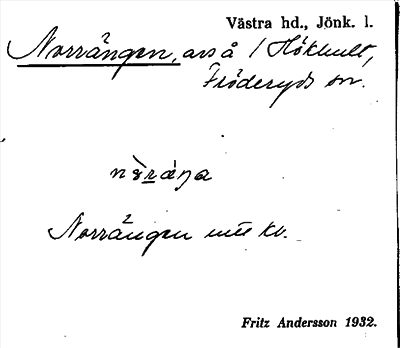 Västra hd., Jönk. l.
Norrängen, avs å / Hökhult,
Fröderyds sn.
Norrängen
Fritz Andersson 1932.